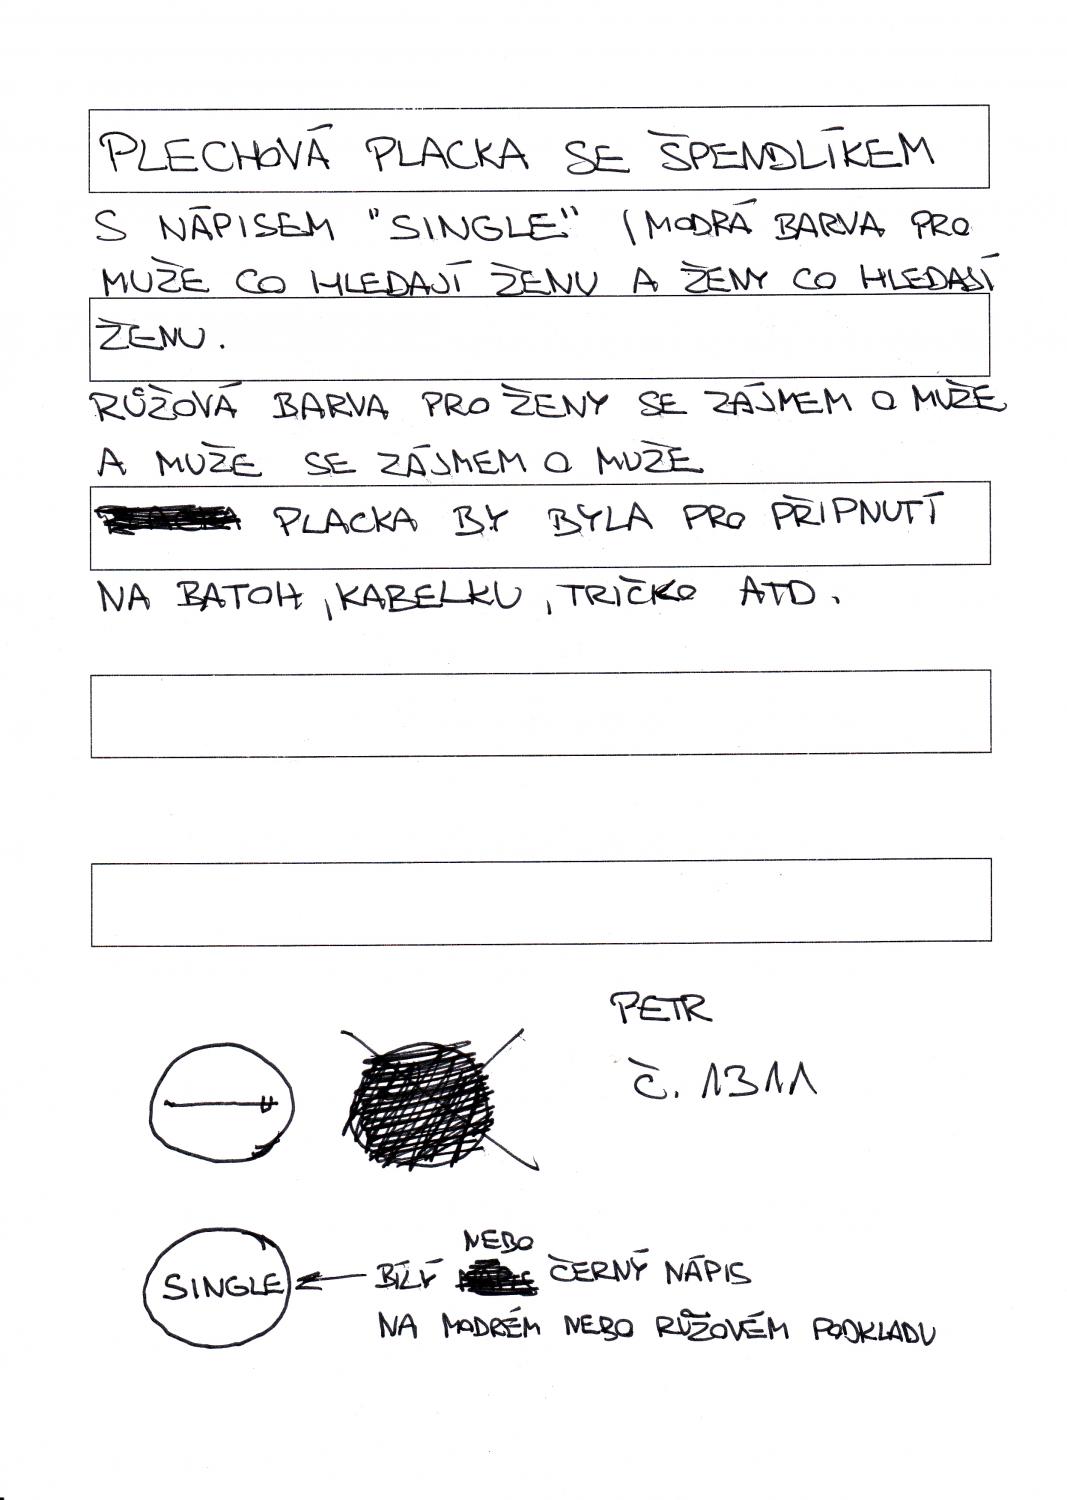 PLECHOVÁ PLACKA SE ŠPENDLÍKEM
S NÁPISEM "SINGLE" (MODRÁ BARVA PRO
MUŽE CO HLEDAJÍ ŽENU A ŽENY CO HLEDAJÍ
ŽENU.
RŮŽOVÁ BARVA PRO ŽENY SE ZÁJMEM O MUŽE
A MUŽE SE ZÁJMEM O MUŽE
PLACKA BY BYLA PRO PŘIPNUTÍ
NA BATOH, KABELKU, TRIČKO ATD.
PETR
Č. 1311
SINGLE
NEBO
BÍLÝ ČERNÝ NÁPIS
NA MODRÉM NEBO RŮŽOVÉM PODKLADU